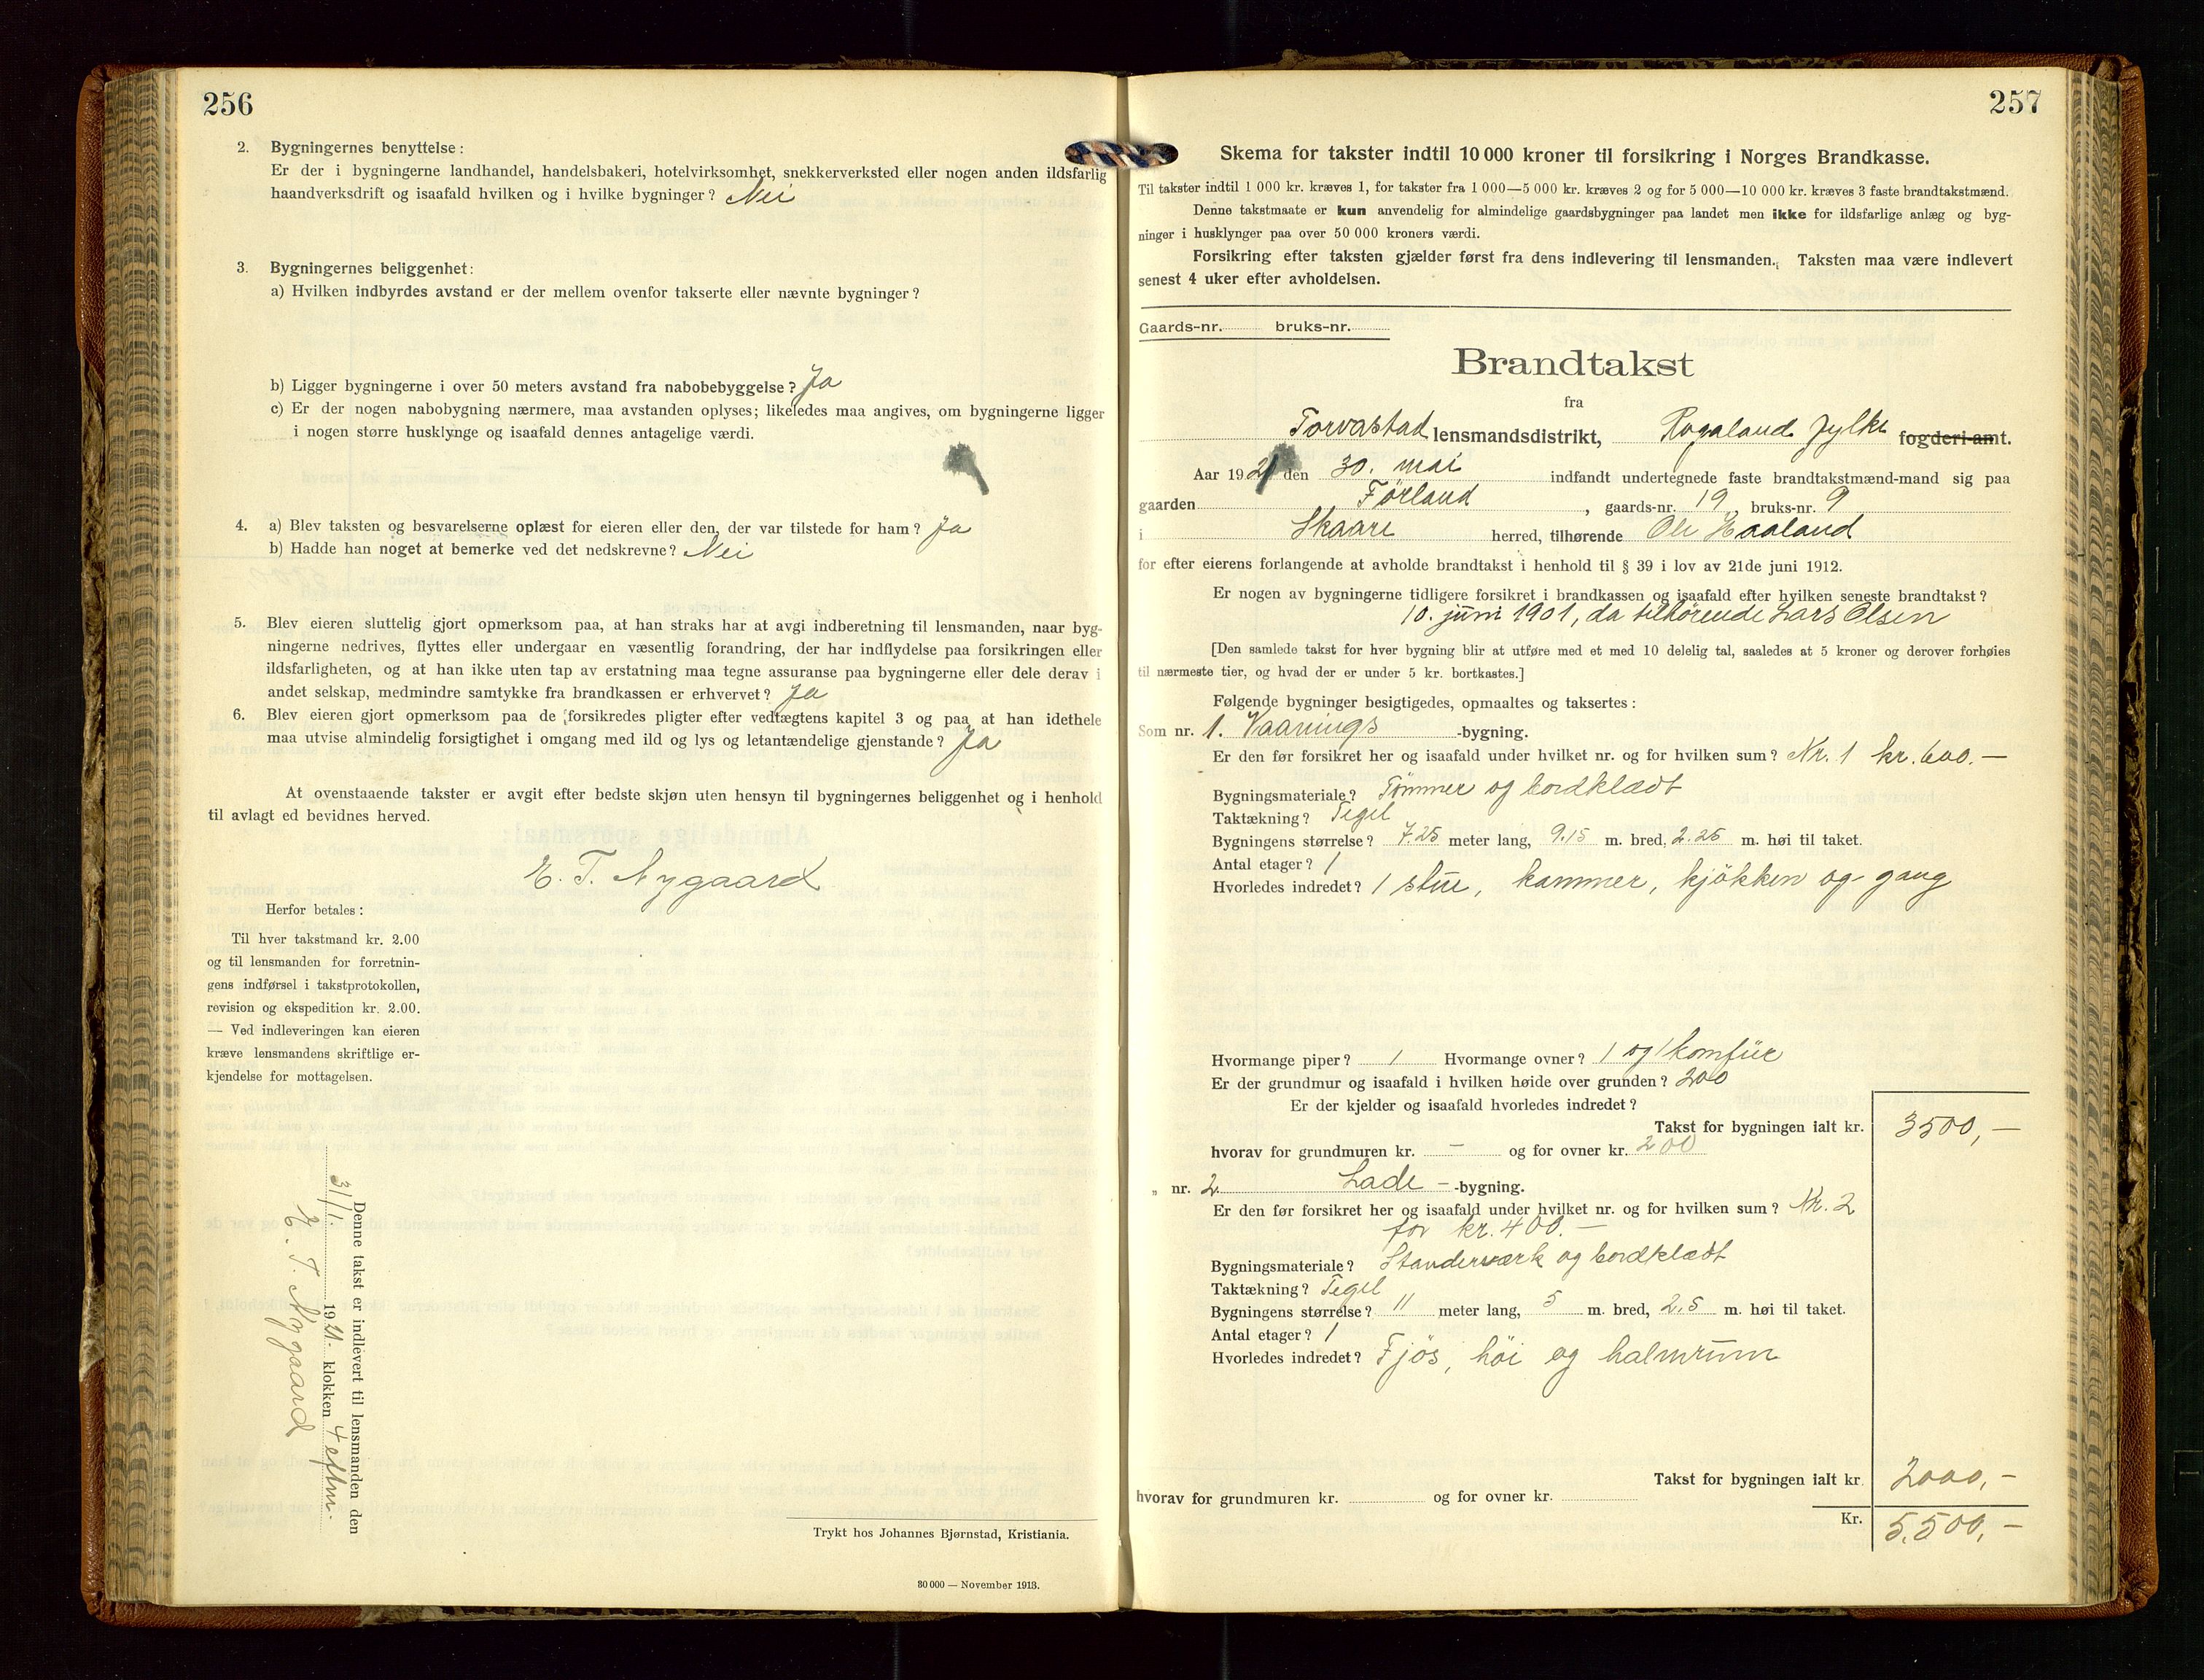 256
2. Bygningernes benyttelse:
Er der i bygningerne landhandel, handelsbakeri, hotelvirksomhet, snekkerverksted eller nogen anden ildsfarlig
haandverksdrift og isaafald hvilken og i hvilke bygninger? Nei
3. Bygningernes beliggenhet:
a) Hvilken indbyrdes avstand er der mellem ovenfor takserte eller nævnte bygninger?
b) Ligger bygningerne i over 50 meters avstand fra nabobebyggelse? Ja
c) Er der nogen nabobygning nærmere, maa avstanden oplyses; likeledes maa angives, om bygningerne ligger
i nogen større husklynge og isaafald dennes antagelige værdi.
4. a) Blev taksten og besvarelserne oplæst for eieren eller den, der var tilstede for ham? Ja
b) Hadde han noget at bemerke ved det nedskrevne? Nei
5. Blev eieren sluttelig gjort opmerksom paa, at han straks har at avgi indberetning til lensmanden, naar byg-
ningerne nedrives, flyttes eller undergaar en væsentlig forandring, der har indflydelse paa forsikringen eller
ildsfarligheten, og at han ikke uten tap av erstatning maa tegne assuranse paa bygningerne eller dele derav i
andet selskap, medmindre samtykke fra brandkassen er erhvervet? Ja
6. Blev eieren gjort opmerksom paa de forsikredes pligter efter vedtægtens kapitel 3 og paa at han idethele
maa utvise almindelig forsigtighet i omgang med ild og lys og letantændelige gjenstande? Ja
At ovenstaaende takster er avgit efter bedste skjøn uten hensyn til bygningernes beliggenhet og i henhold
til avlagt ed bevidnes herved.
E. T. Nygaard
Herfor betales:
Til hver takstmand kr. 2.00
og til lensmanden for forretnin-
gens indførsel i takstprotokollen,
revision og ekspedition kr. 2.00.
— Ved indleveringen kan eieren
kræve lensmandens skriftlige er-
kjendelse for mottagelsen.
Denne takst er indlevert til lensmanden den
31/1. 1921. klokken 4 eftm.
E. T. Nygaard
Trykt hos Johannes Bjørnstad, Kristiania.
30 000 — November 1913.
257
Skema for takster indtil 10 000 kroner til forsikring i Norges Brandkasse.
Til takster indtil 1 000 kr. kræves 1, for takster fra 1 000—5 000 kr. kræves 2 og for 5 000—10 000 kr. kræves 3 faste brandtakstmænd.
Denne takstmaate er kun anvendelig for almindelige gaardsbygninger paa landet men ikke for ildsfarlige anlæg og byg-
ninger i husklynger paa over 50 000 kroners værdi.
Forsikring efter taksten gjælder først fra dens indlevering til lensmanden. Taksten maa være indlevert
senest 4 uker efter avholdelsen.
Gaards-nr. bruks-nr.
Brandtakst
fra
Torvastad lensmandsdistrikt, Rogaland fylke fogderi-amt.
Aar 1921 den 30. mai indfandt undertegnede faste brandtakstmænd-mand sig paa
gaarden Førland, gaards-nr. 19 bruks-nr. 9
i Skaare herred, tilhørende Ole Haaland
for efter eierens forlangende at avholde brandtakst i henhold til § 39 i lov av 21de juni 1912.
Er nogen av bygningerne tidligere forsikret i brandkassen og isaafald efter hvilken seneste brandtakst?
10. juni 1901, da tilhörende Lars Olsen
[Den samlede takst for hver bygning blir at utføre med et med 10 delelig tal, saaledes at 5 kroner og derover forhøies
til nærmeste tier, og hvad der er under 5 kr. bortkastes.]
Følgende bygninger besigtigedes, opmaaltes og taksertes:
Som nr. 1. Vaanings -bygning.
Er den før forsikret her og isaafald under hvilket nr. og for hvilken sum? Nr. 1 kr. 600.—
Bygningsmateriale? Tömmer og bordklædt
Taktækning? Tegel
Bygningens størrelse? 7.25 meter lang, 9.15 m. bred, 2.25 m. høi til taket.
Antal etager? 1
Hvorledes indredet? 1 stue, kammer, kjökken og gang
Hvormange piper? 1 Hvormange ovner? 1 og 1 komfür
Er der grundmur og isaafald i hvilken høide over grunden? 200
Er der kjelder og isaafald hvorledes indredet?
Takst for bygningen ialt kr. 3500,—
hvorav for grundmuren kr. — og for ovner kr. 200
„ nr. 2 Lade - -bygning.
Er den før forsikret her og isaafald under hvilket nr. og for hvilken sum? Nr. 2
for kr. 400.—
Bygningsmateriale? Standerværk og bordklædt
Taktækning? Tegel
Bygningens størrelse? 11 meter lang, 5 m. bred, 2.5 m. høi til taket.
Antal etager? 1
Hvorledes indredet? Fjös, höi og halmrum
Takst for bygningen ialt kr. 2000,-
hvorav for grundmuren kr. og for ovner kr.
Kr. 5.500,-